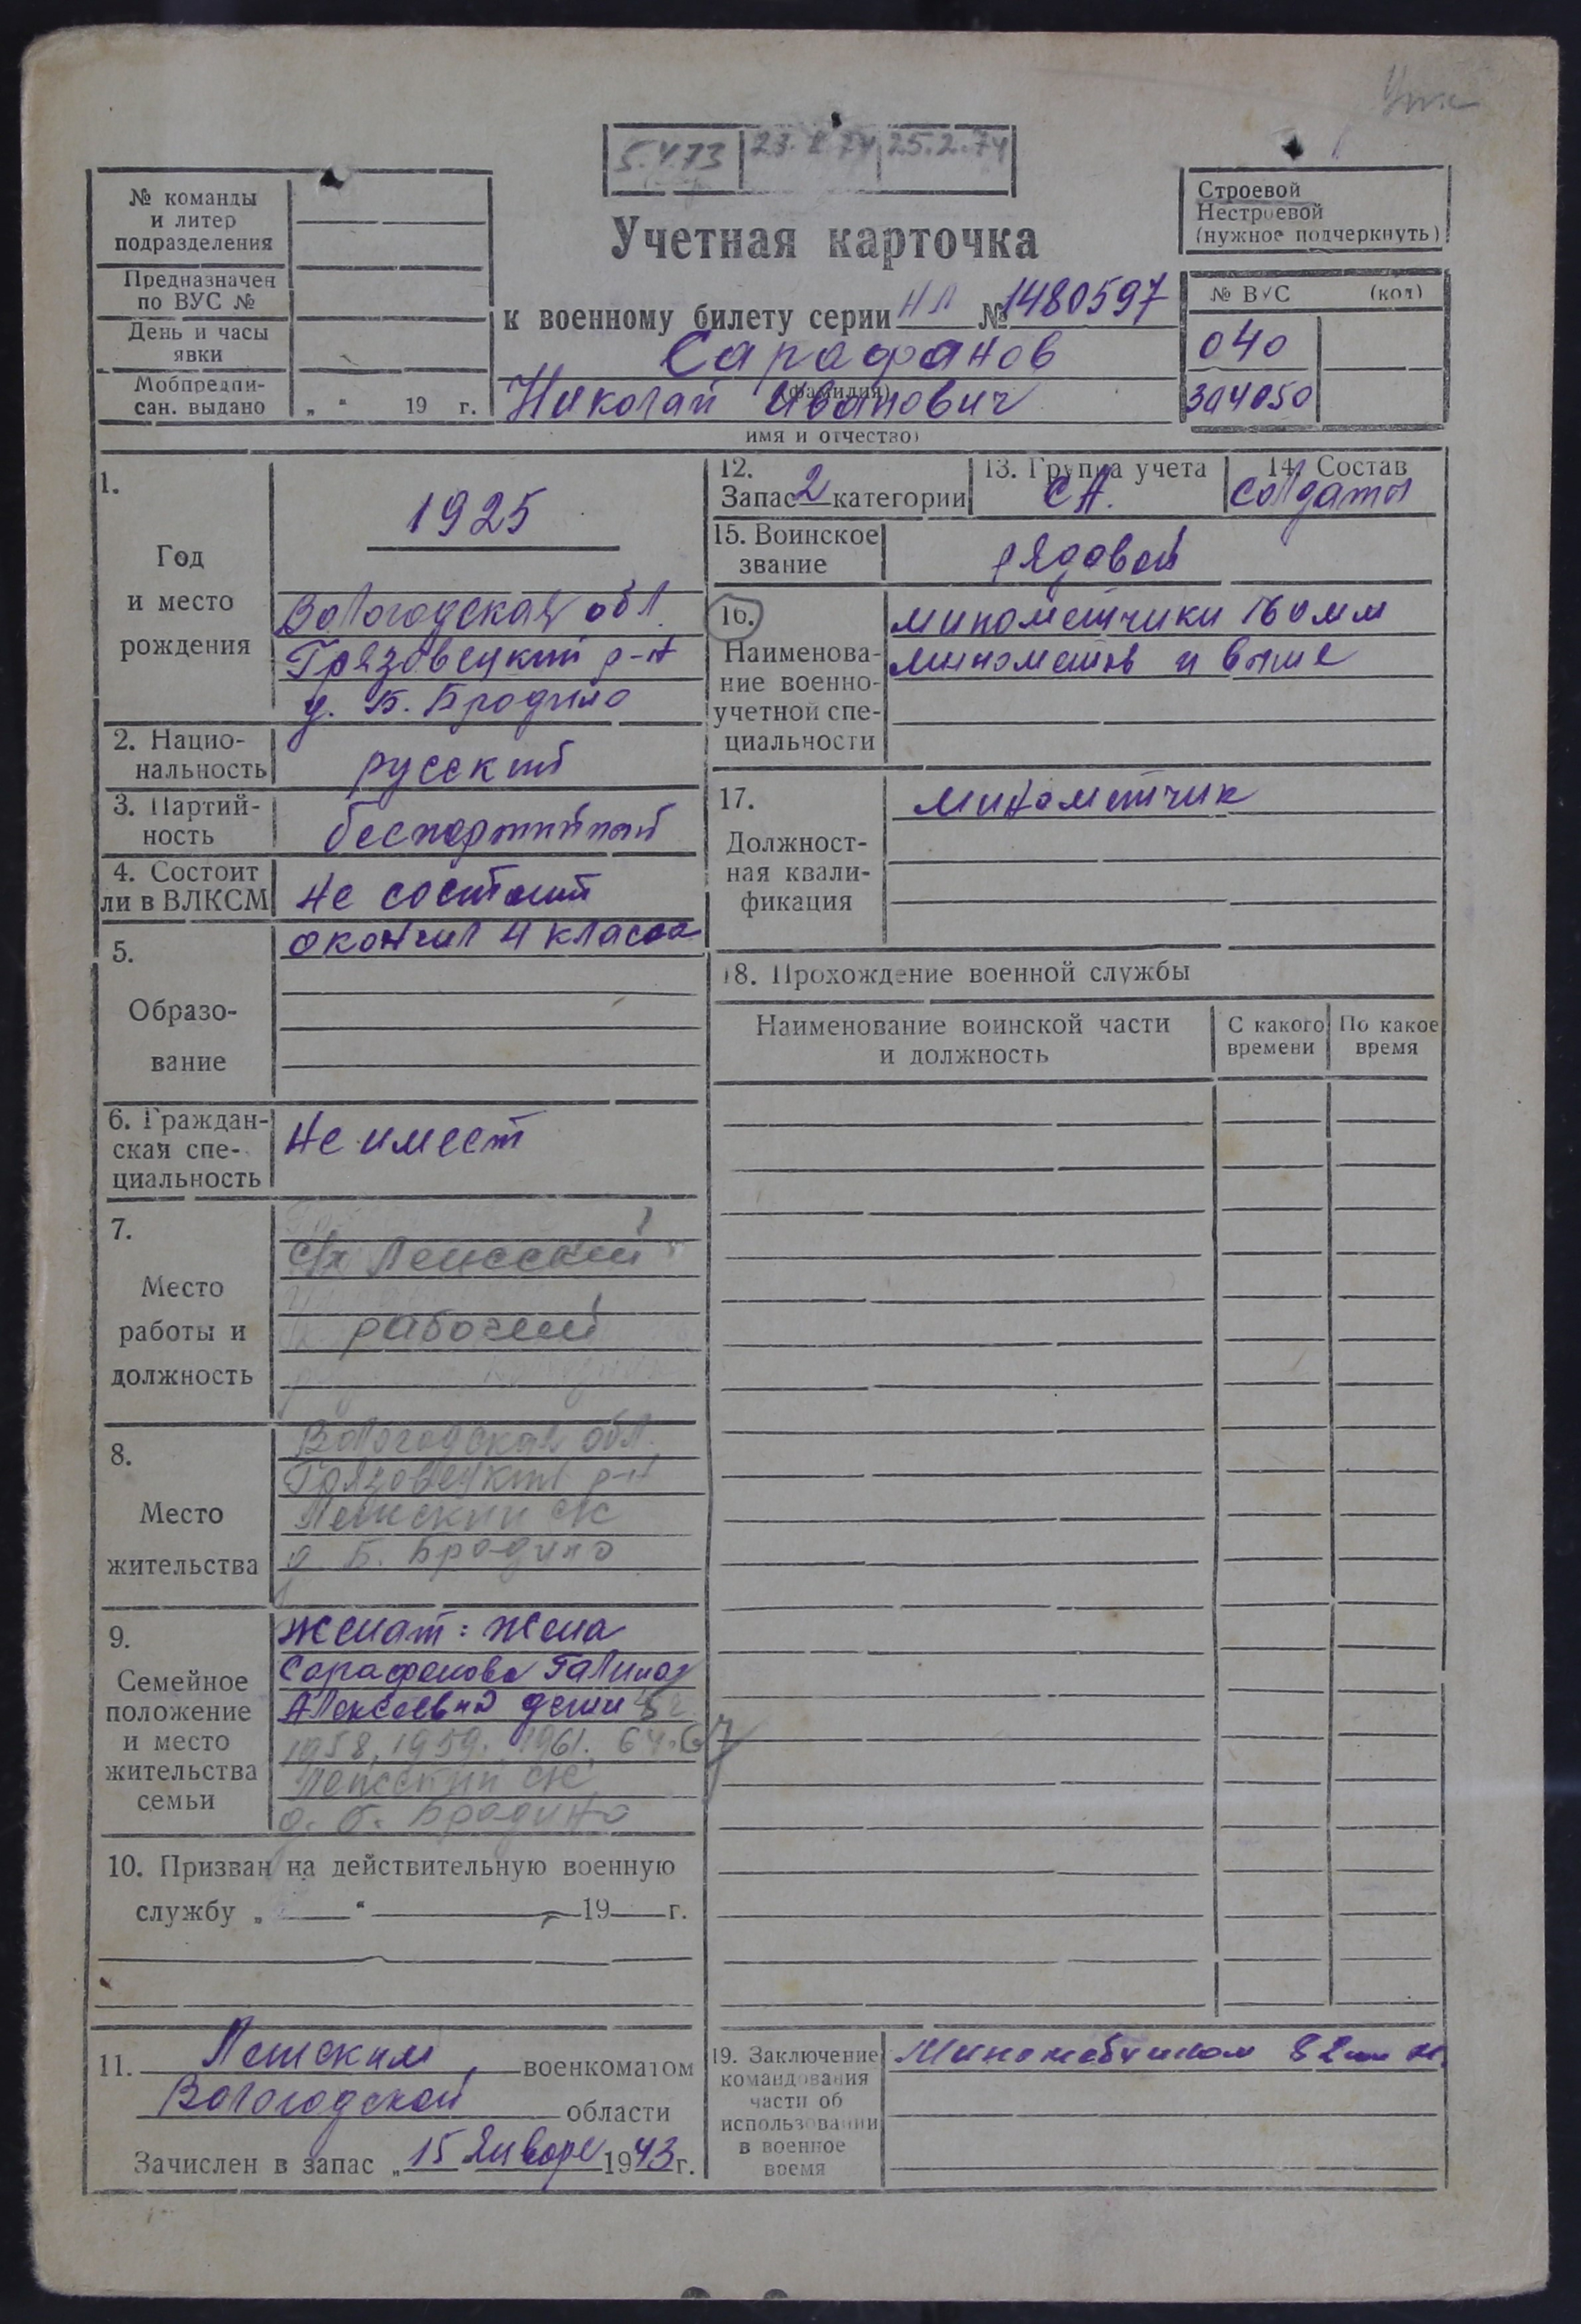 5.4.73 | 23.2.74 | 25.2.74
№ команды
и литер
подразделения
Предназначен
по ВУС №
День и часы
явки
Мобпредпи-
сан. выдано „ “ 19 г.
Учетная карточка
к военному билету серии НЛ № 1480597
Сарафанов
(фамилия)
Николай Иванович
имя и отчество)
Строевой
Нестроевой
(нужное подчеркнуть)
№ ВУС (код)
040
304050
1.
Год
и место
рождения
1925
Вологодская обл.
Грязовецкий р-н
д. Б. Бродино
2. Нацио-
нальность
русский
3. Партий-
ность
беспартийный
4. Состоит
ли в ВЛКСМ
не состоит
5.
Образо-
вание
окончил 4 класса
6. Граждан-
ская спе-
циальность
Не имеет
7.
Место
работы и
должность
рабочий
8.
Место
жительства
Вологодская обл.
Грязовецкий р-н
д. Б. Бродино
9.
Семейное
положение
и место
жительства
семьи
женат: жена
Сарафанова Галина
Алексеевна дети
1958, 1959. 1961. 64. 67
д. Б. Бродино
10. Призван на действительную военную
службу „ “ 19 г.
11. военкоматом
Вологодской области
Зачислен в запас „15 января 1943 г.
12.
Запас 2 категории
13. Группа учета
СА.
14. Состав
солдаты
15. Воинское
звание
рядовой
16.
Наименова-
ние военно-
учетной спе-
циальности
минометчики 160 мм
минометов и выше
17.
Должност-
ная квали-
фикация
минометчик
18. Прохождение военной службы
Наименование воинской части
и должность
С какого
времени
По какое
время
19. Заключение
командования
части об
использовании
в военное
время
82 мм